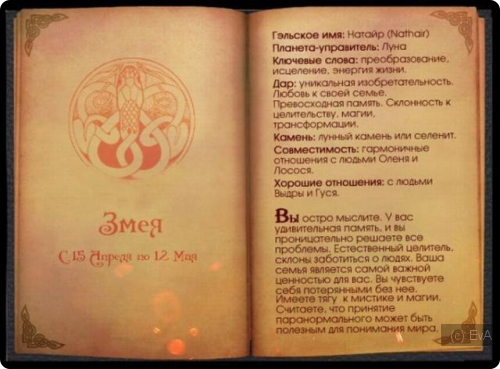 Змея
С 15 Апреля по 12 Мая
Гэльское имя: Натайр (Nathair)
Планета-управитель: Луна
Ключевые слова: преобразование,
исцеление, энергия жизни.
Дар: уникальная изобретательность.
Любовь к своей семье.
Превосходная память. Склонность к
целительству, магии,
трансформации.
Камень: лунный камень или селенит.
Совместимость: гармоничные
отношения с людьми Оленя и
Лосося.
Хорошие отношения: с людьми
Выдры и Гуся.
Вы остро мыслите. У вас
удивительная память, и вы
проницательно решаете все
проблемы. Естественный целитель,
склоны заботиться о людях. Ваша
семья является самой важной
ценностью для вас. Вы чувствуете
себя потерянными без нее.
Имеете тягу к мистике и магии.
Считаете, что принятие
паранормального может быть
полезным для понимания мира.
© EvA